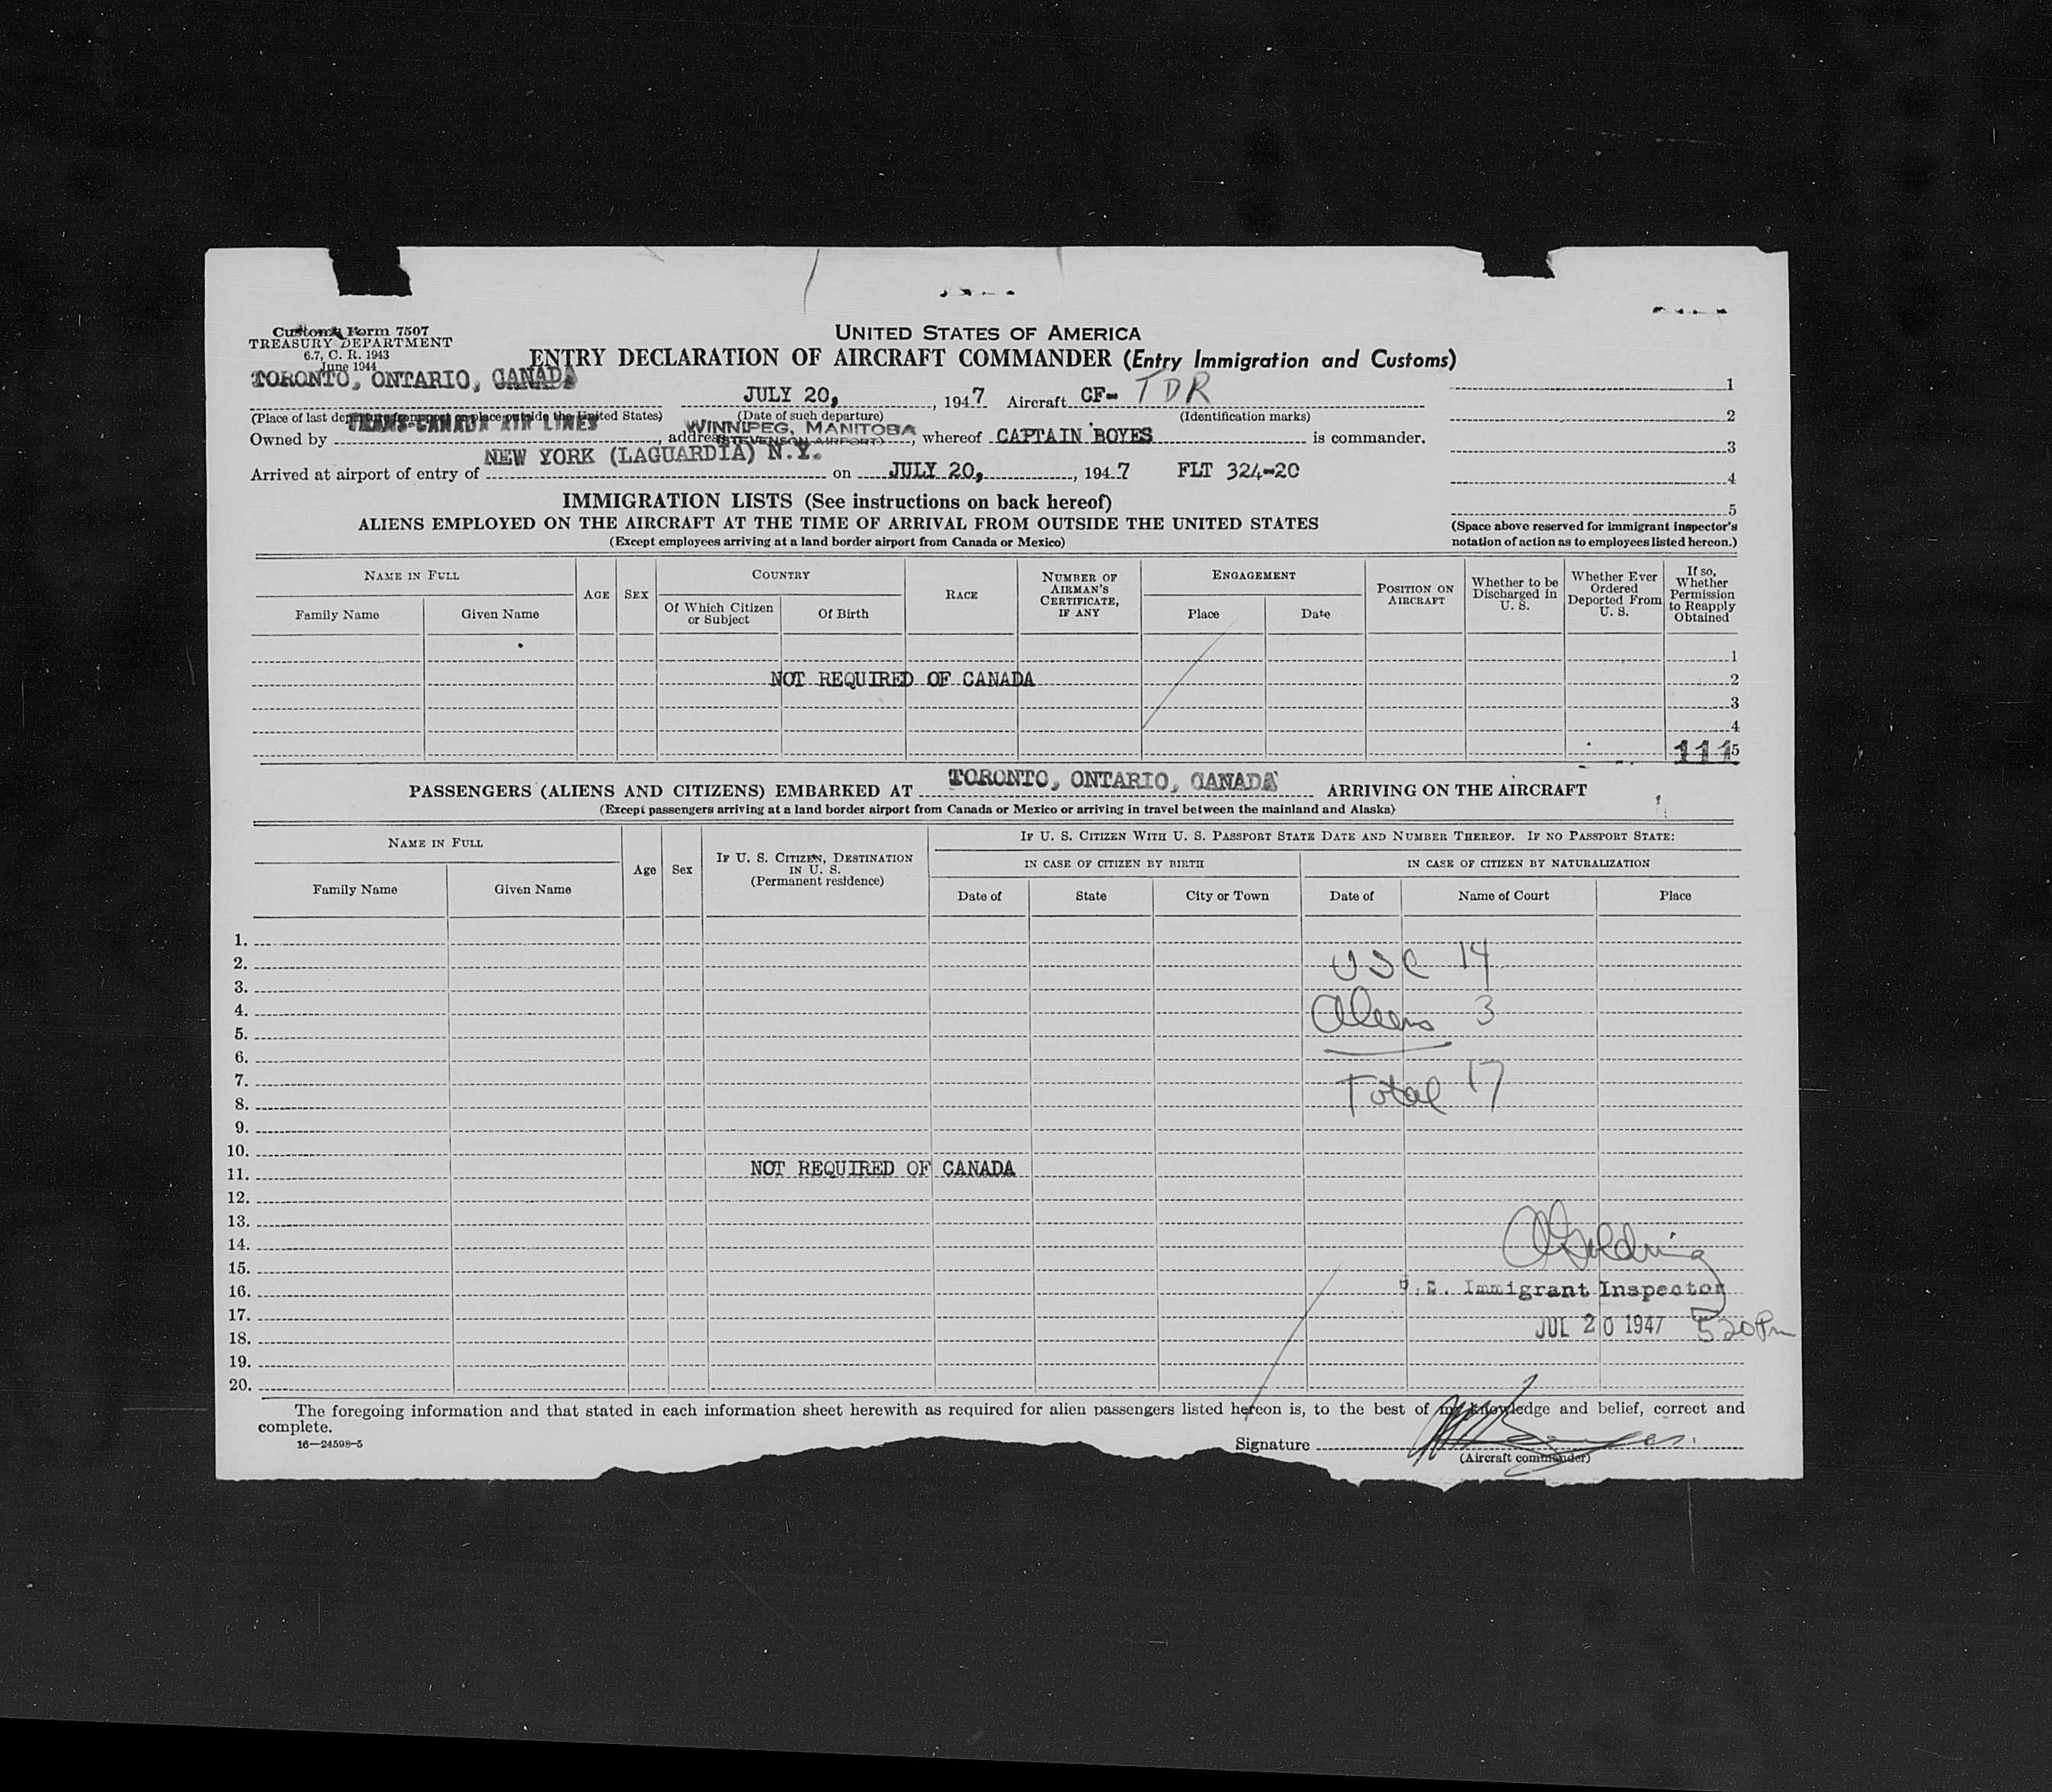 Customs Form 7507
TREASURY DEPARTMENT
6.7, C. R. 1943
June 1944
UNITED STATES OF AMERICA
ENTRY DECLARATION OF AIRCRAFT COMMANDER (Entry Immigration and Customs)
TORONTO, ONTARIO, CANADA JULY 20, , 1947 Aircraft CF- TDR 1
(Place of last departure from port or place outside the United States) (Date of such departure) (Identification marks) 2
TRANS-CANADA AIR LINES WINNIPEG, MANITOBA
Owned by , address (STEVENSON AIRPORT) , whereof CAPTAIN BOYES is commander. 3
Arrived at airport of entry of NEW YORK (LAGUARDIA) N.Y. on JULY 20, , 1947 FLT 324-20 4
IMMIGRATION LISTS (See instructions on back hereof) 5
ALIENS EMPLOYED ON THE AIRCRAFT AT THE TIME OF ARRIVAL FROM OUTSIDE THE UNITED STATES
(Except employees arriving at a land border airport from Canada or Mexico)
(Space above reserved for immigrant inspector's
notation of action as to employees listed hereon.)
NAME IN FULL AGE SEX COUNTRY RACE NUMBER OF AIRMAN'S CERTIFICATE, IF ANY ENGAGEMENT POSITION ON AIRCRAFT Whether to be Discharged in U. S. Whether Ever Ordered Deported From U. S. If so, Whether Permission to Reapply Obtained
Family Name Given Name Of Which Citizen or Subject Of Birth Place Date
1
NOT REQUIRED OF CANADA 2
3
4
111 5
PASSENGERS (ALIENS AND CITIZENS) EMBARKED AT TORONTO, ONTARIO, CANADA ARRIVING ON THE AIRCRAFT
(Except passengers arriving at a land border airport from Canada or Mexico or arriving in travel between the mainland and Alaska)
NAME IN FULL Age Sex IF U. S. CITIZEN, DESTINATION IN U. S. (Permanent residence) IF U. S. CITIZEN WITH U. S. PASSPORT STATE DATE AND NUMBER THEREOF. IF NO PASSPORT STATE:
IN CASE OF CITIZEN BY BIRTH IN CASE OF CITIZEN BY NATURALIZATION
Family Name Given Name Date of State City or Town Date of Name of Court Place
1.
2. USC 14
3.
4. Aliens 3
5.
6.
7.
8. Total 17
9.
10.
11. NOT REQUIRED OF CANADA
12.
13.
14. A Goldring
15.
16. U.S. Immigrant Inspector
17.
18. JUL 20 1947 520 Pm
19.
20.
The foregoing information and that stated in each information sheet herewith as required for alien passengers listed hereon is, to the best of my knowledge and belief, correct and
complete.
16—24598-5
Signature
(Aircraft commander)